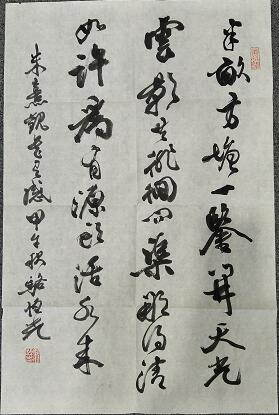 半畝方塘一鑒開天光
雲影共徘徊问渠那得清
如許為有源頭活水来
朱熹觀書有感甲午秋